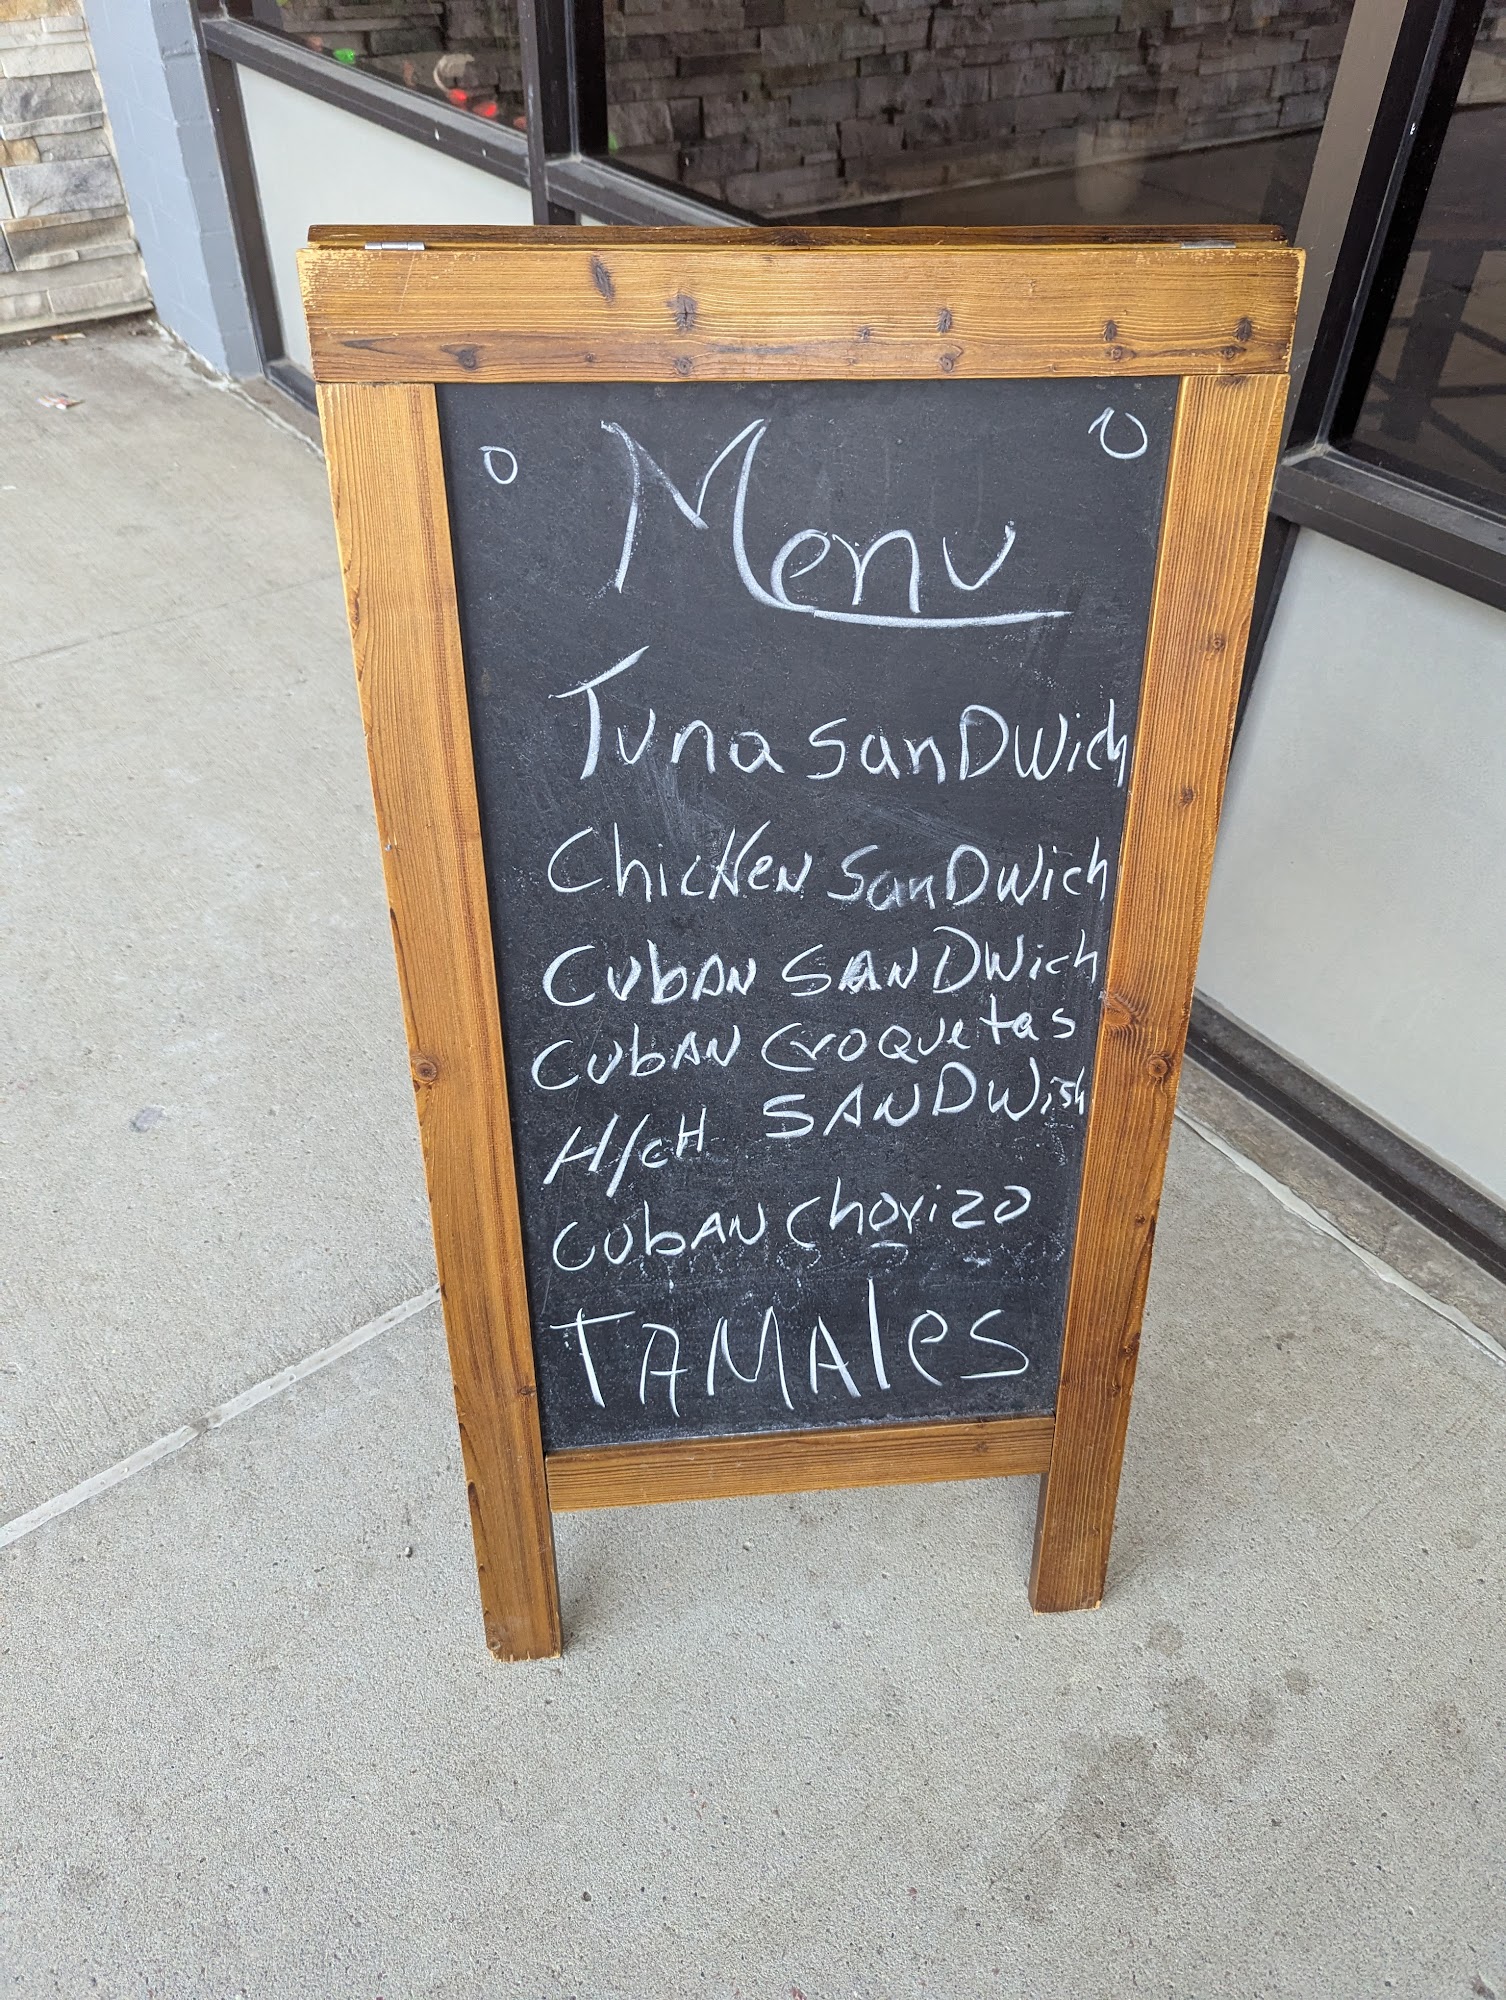 Menu
Tuna SanDWich
ChicKeN SanDWich
CUbAN SANDWich
CUbAN CroQUetas
H/cH SANDWish
CUbAN Chorizo
TAMAles